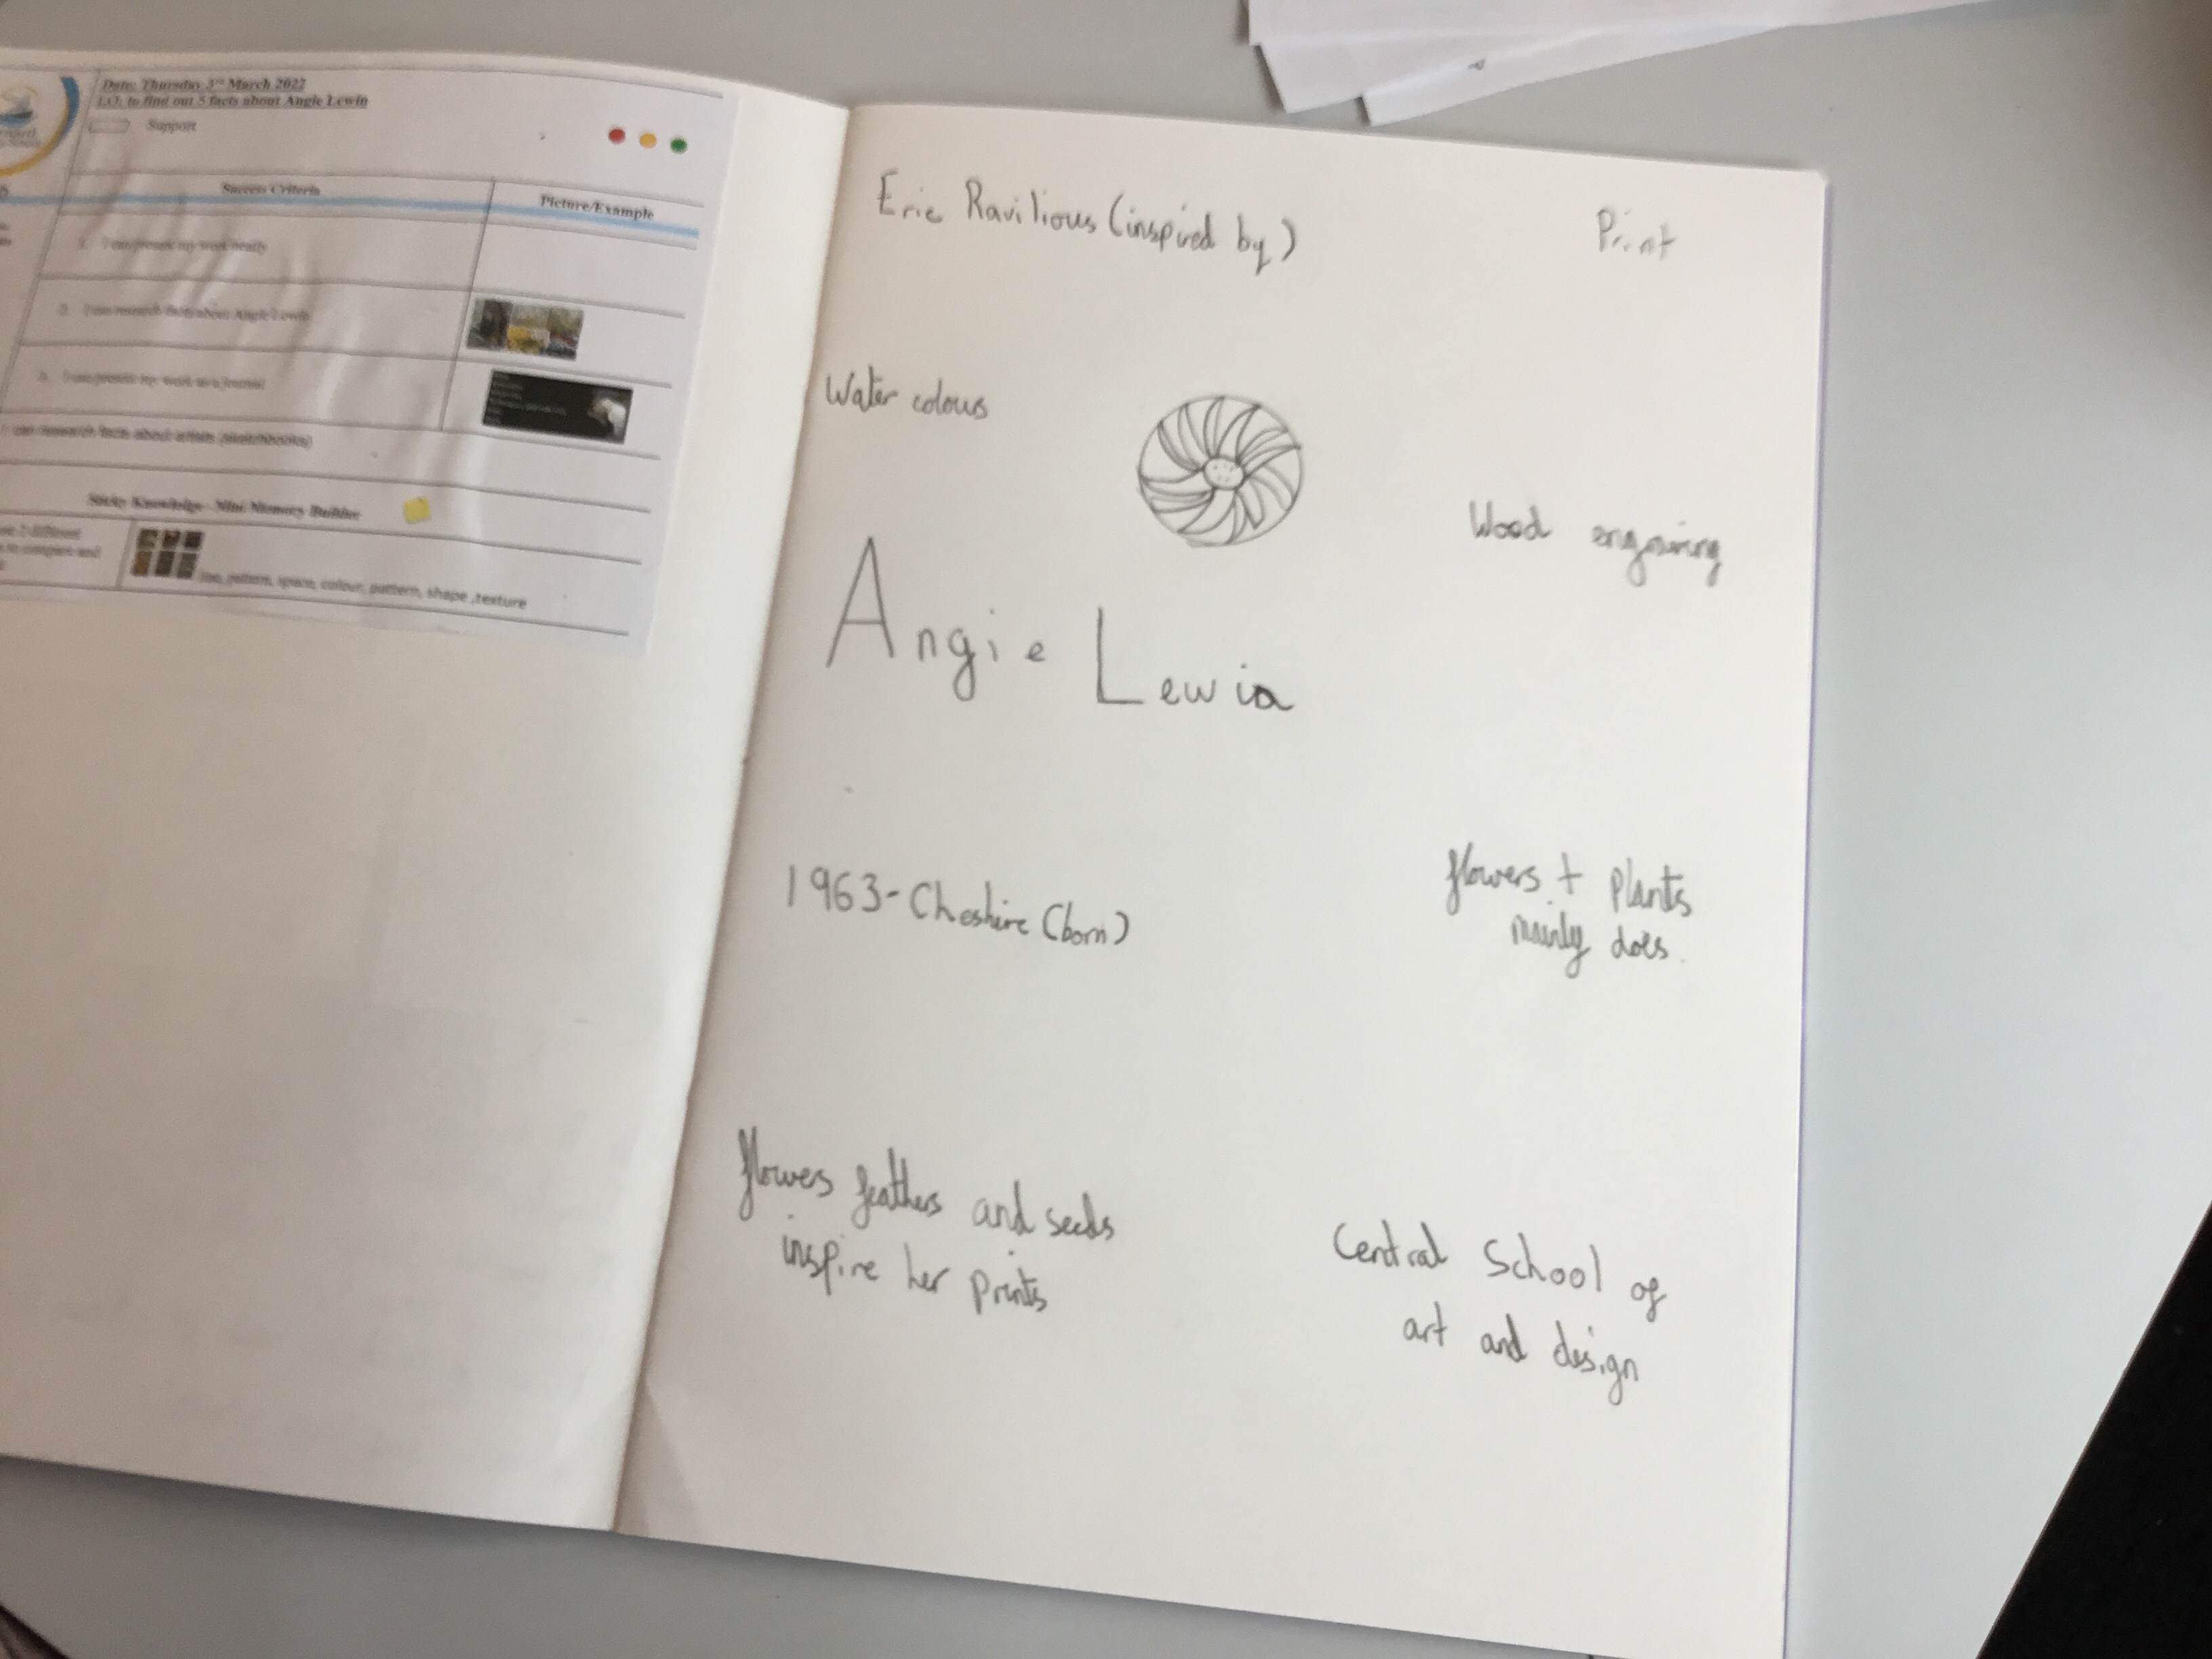 Date: Thursday 3rd March 2022
LO: to find out 5 facts about Angie Lewin
Support
Success Criteria
Picture/Example
1. I can present my work neatly
2. I can research facts about Angie Lewin
3. I can present my work as a journal
I can research facts about artists (sketchbooks)
Sticky Knowledge - Mini Memory Builder
line, pattern, space, colour, pattern, shape ,texture
Eric Ravilious (inspired by)
Print
Water colous
Wood engraving
Angie Lewin
1963-Cheshire (born)
flowers + plants
mainly does.
flowes feathers and seeds
inspire her prints
Central School of
art and design